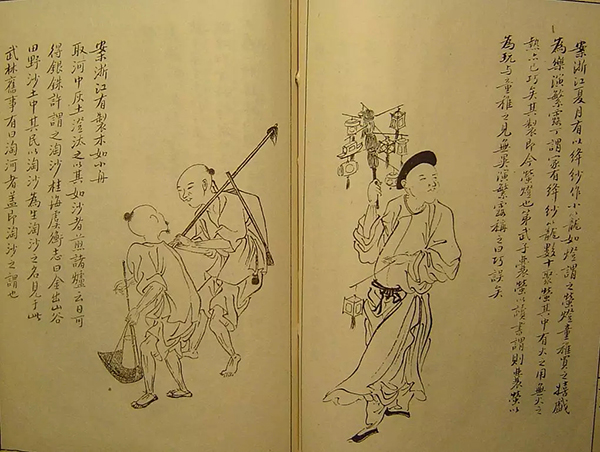 案浙江夏月有以絳紗作小籠如燈謂之螢燈童雅買之嬉戲
為樂演繁露丁謂家有絳紗籠數十聚螢其中有火之用無火之
熱亦已巧矣其製即今螢燈也第武子囊螢以讀書謂則聚螢以
為玩与童雅之見無異演繁露稱之曰巧誤矣
案浙江有製木如小舟
取河中灰土澄汰之以其如沙者煎諸爐云日可
得銀銖許謂之淘沙桂海虞衡志曰金出山谷
田野沙土中其民以淘沙為生淘沙之名見于此
武林舊事有曰淘河者蓋即淘沙之謂也